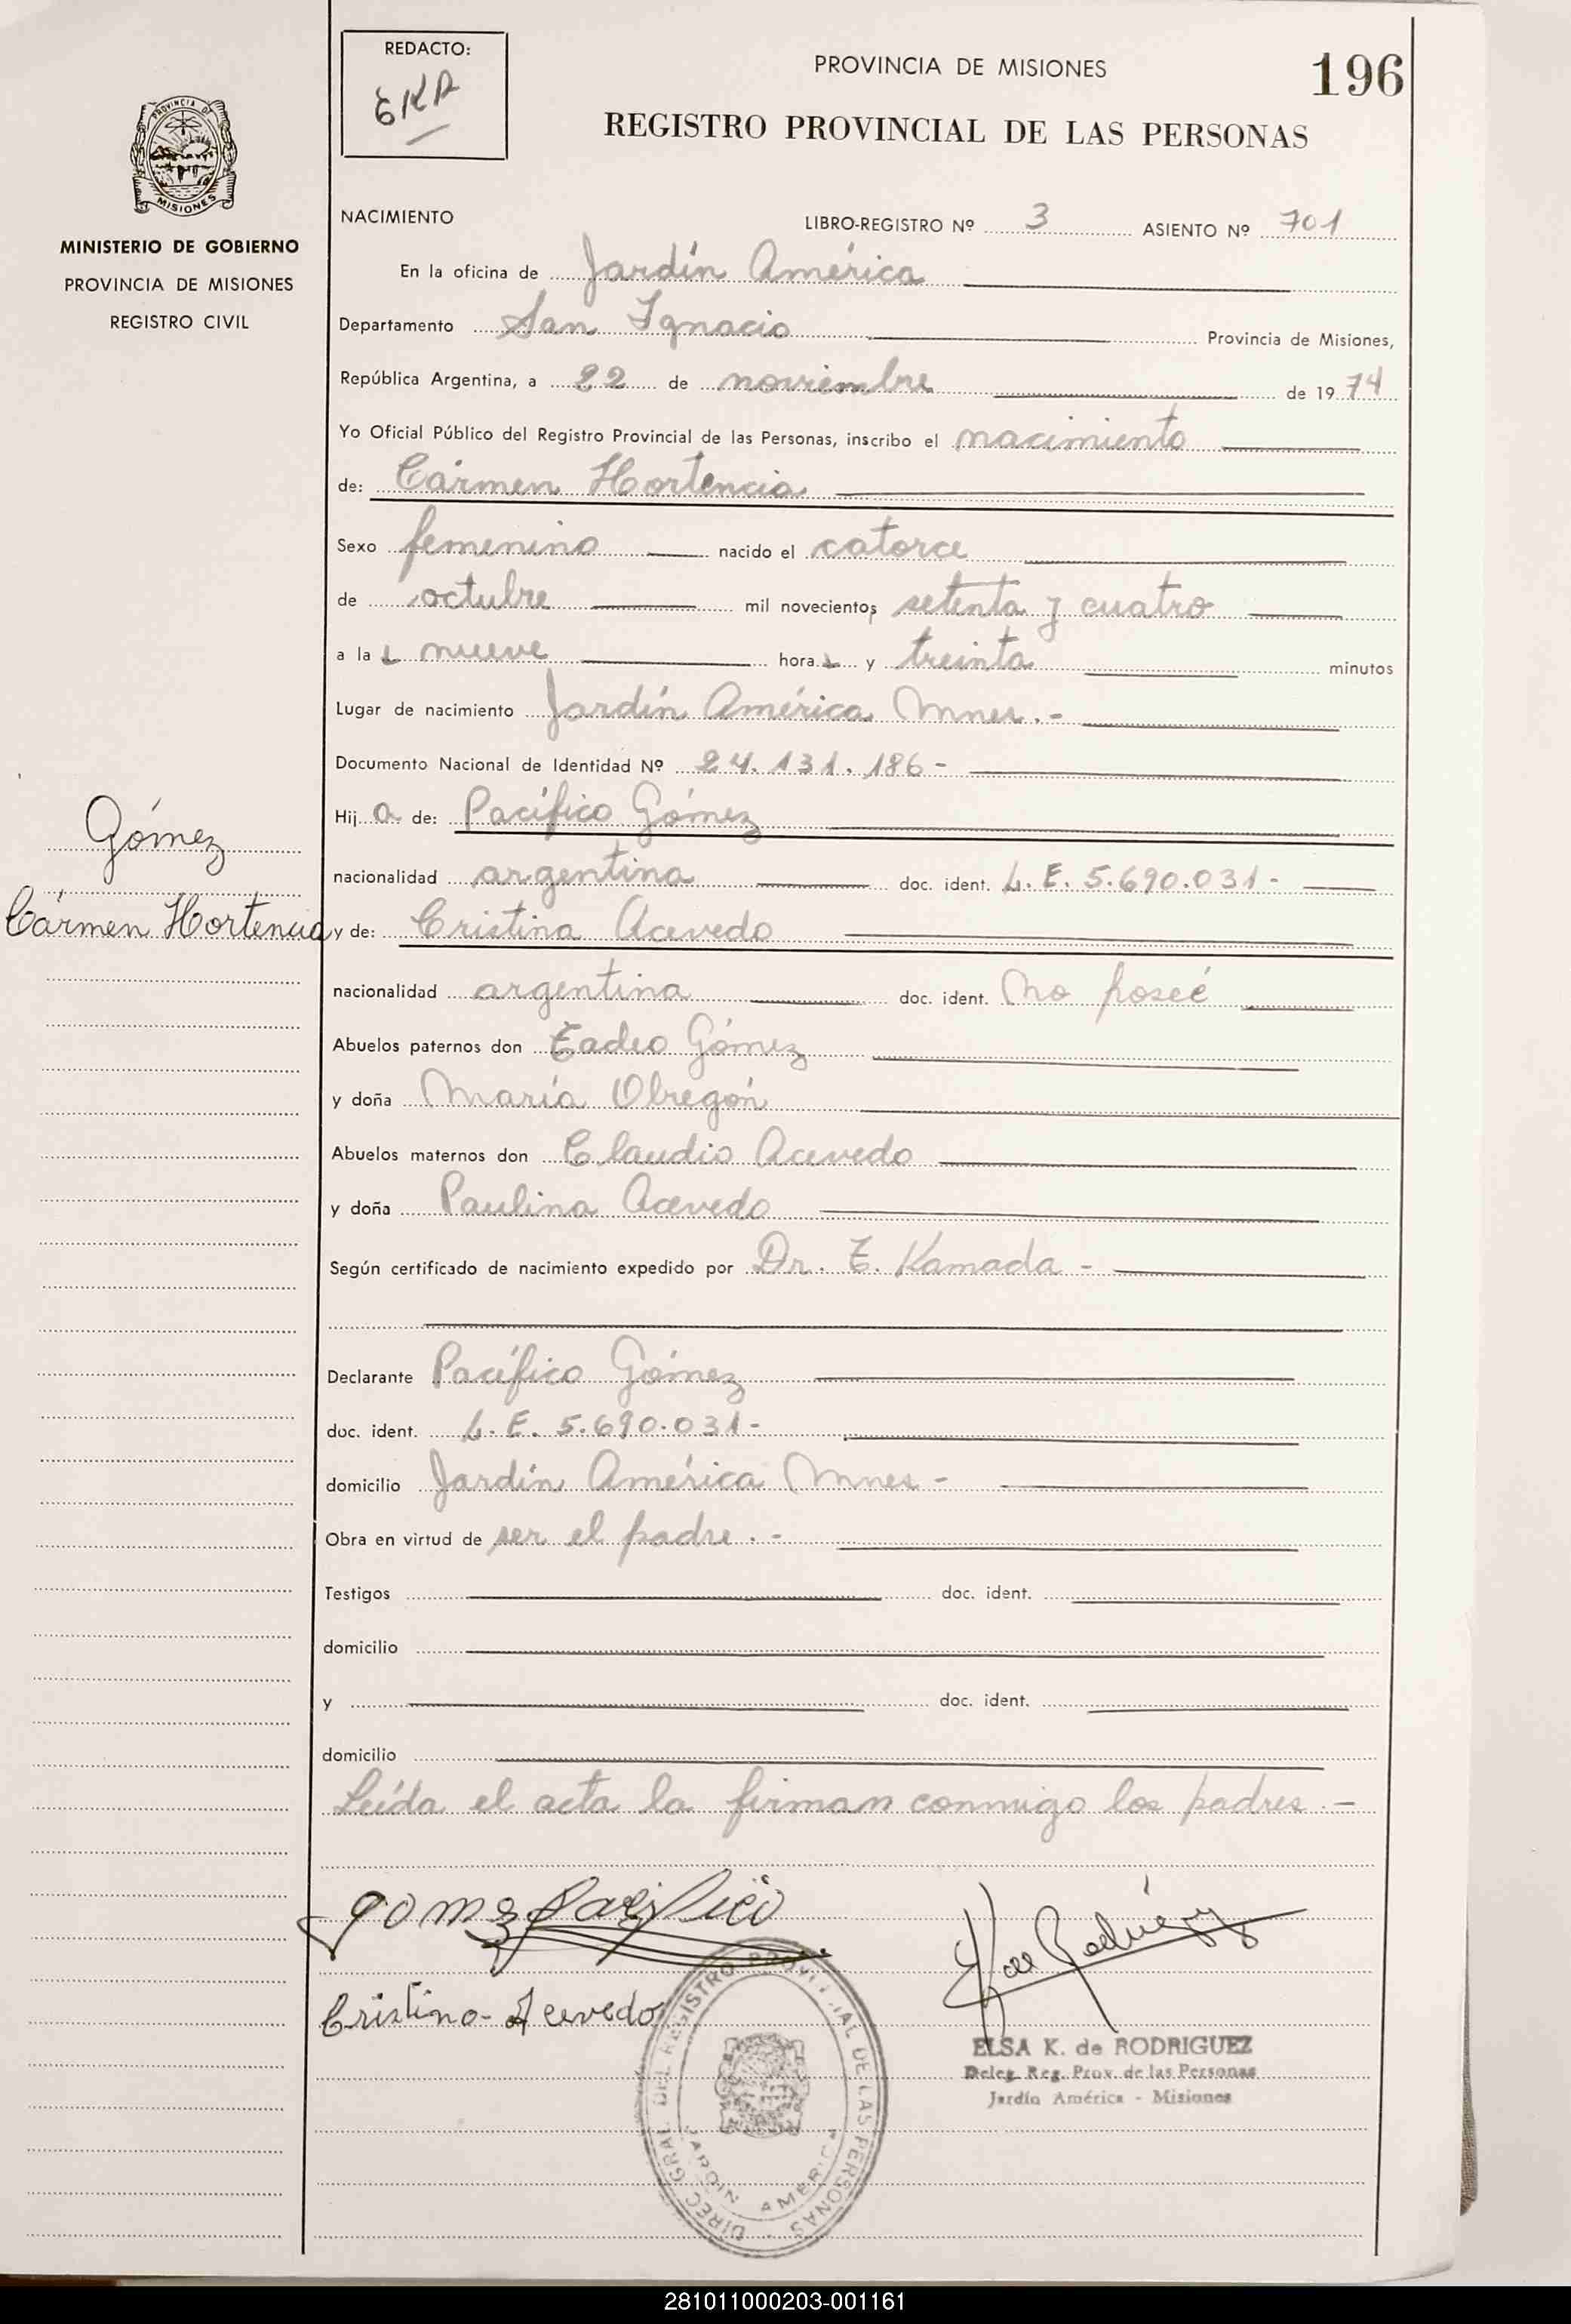 REDACTO:
EKR
PROVINCIA DE MISIONES
196
REGISTRO PROVINCIAL DE LAS PERSONAS
PROVINCIA DE
MISIONES
MINISTERIO DE GOBIERNO
PROVINCIA DE MISIONES
REGISTRO CIVIL
NACIMIENTO LIBRO-REGISTRO Nº 3 ASIENTO Nº 701
En la oficina de Jardín América
Departamento San Ignacio Provincia de Misiones,
República Argentina, a 22 de noviembre de 1974
Yo Oficial Público del Registro Provincial de las Personas, inscribo el nacimiento
de: Cármen Hortencia
Sexo femenino nacido el catorce
de octubre mil novecientos setenta y cuatro
a las nueve horas y treinta minutos
Lugar de nacimiento Jardín América Mnes.-
Documento Nacional de Identidad Nº 24.131.186-
Hija de: Pacífico Gómez
nacionalidad argentina doc. ident. L.E. 5.690.031-
Gómez
Cármen Hortencia
y de: Cristina Acevedo
nacionalidad argentina doc. ident. No poseé
Abuelos paternos don Tadeo Gómez
y doña María Obregón
Abuelos maternos don Claudio Acevedo
y doña Paulina Acevedo
Según certificado de nacimiento expedido por Dr. T. Kamada -
Declarante Pacífico Gómez
doc. ident. L.E. 5.690.031-
domicilio Jardín América Mnes-
Obra en virtud de ser el padre.-
Testigos doc. ident.
domicilio
y doc. ident.
domicilio
Leída el acta la firman conmigo los padres.-
gomez Pacifico
Cristina Acevedo
Elsa Rodríguez
ELSA K. de RODRIGUEZ
Deleg. Reg. Prov. de las Personas
Jardín América - Misiones
DIREC. GRAL DEL REGISTRO PROVINCIAL DE LAS PERSONAS -
JARDIN AMERICA
281011000203-001161